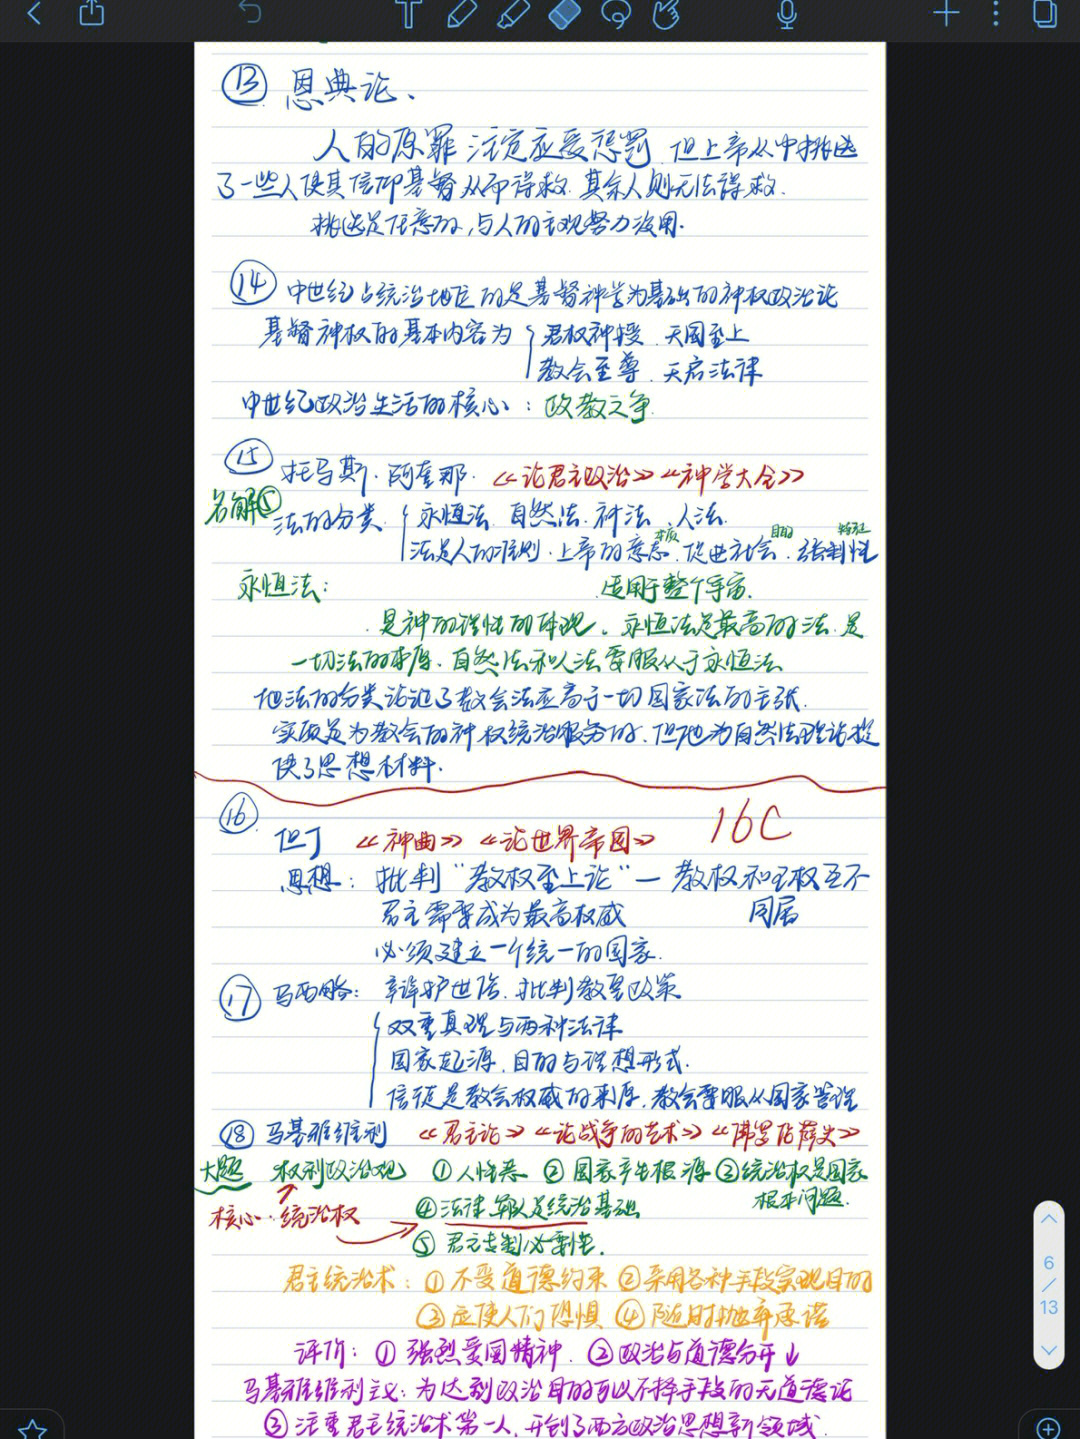 ⑬ 恩典论、
人的原罪注定应受惩罚,但上帝从中挑选
了一些人使其信仰基督从而得救.其余人则无法得救.
挑选是任意的,与人的主观努力没用.
⑭ 中世纪占统治地位的是基督神学为基础的神权政治论
基督神权的基本内容为 { 君权神授、天国至上
教会至尊、天启法律
中世纪政治生活的核心:政教之争.
⑮ 托马斯·阿奎那.《论君主政治》《神学大全》
名解⑤ 法的分类 { 永恒法.自然法.神法.人法.
本质 目的 特征
法是人的准则.上帝的意志.促进社会.强制性
永恒法: 适用于整个宇宙.
是神的理性的体现。永恒法是最高的法.是
一切法的本原.自然法和人法要服从于永恒法
他法的分类论证了教会法应高于一切国家法的主张.
实质是为教会的神权统治服务的.但他为自然法理论提
供了思想材料.
⑯ 16C
但丁 《神曲》《论世界帝国》
思想:批判“教权至上论”— 教权和王权互不
君主需要成为最高权威 同属
必须建立一个统一的国家.
⑰ 马西略: 辩护世俗.批判教皇政策
{ 双重真理与两种法律
国家起源.目的与理想形式.
信徒是教会权威的来原.教会要服从国家管理
⑱ 马基雅维利 《君主论》《论战争的艺术》《佛罗伦萨史》
大题 权利政治观 ①人性恶 ②国家产生根源 ③统治权是国家
根本问题.
核心:统治权 ④法律军队是统治基础
⑤君主专制必要性.
君主统治术:①不受道德约束 ②采用各种手段实现目的
③应使人们恐惧 ④随时抛弃承诺
评价:①强烈爱国精神. ②政治与道德分开↓
马基雅维利主义:为达到政治目的可以不择手段的无道德论
③注重君主统治术第一人.开创了西方政治思想新领域.
6
/
13